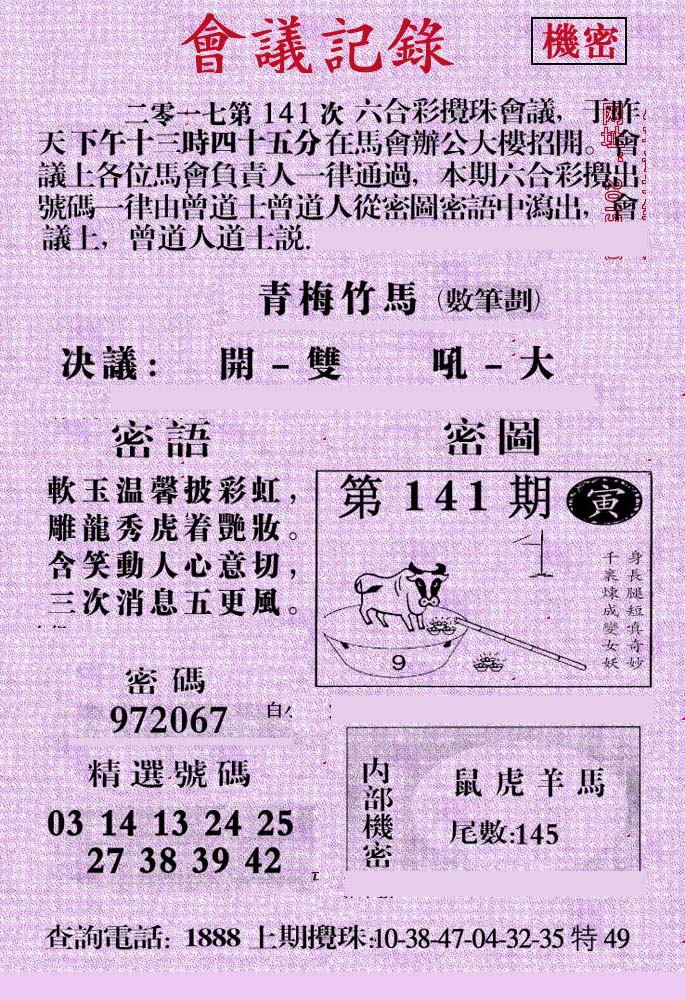 會議記錄
機密
二零一七第141次 六合彩攪珠會議，于昨
天下午十三時四十五分在馬會辦公大樓招開。會
議上各位馬會負責人一律通過，本期六合彩攪出
號碼一律由曾道士曾道人從密圖密語中瀉出，會
議上，曾道人道士説.
青梅竹馬（數筆劃）
决議： 開－雙 吼－大
密語
軟玉温馨披彩虹，
雕龍秀虎着艷妝。
含笑動人心意切，
三次消息五更風。
密圖
第141期 寅
身長腿短真奇妙
千裏煉成變女妖
9
密碼
972067
白小
精選號碼
03 14 13 24 25
27 38 39 42
内部機密
鼠虎羊馬
尾數:145
查詢電話：1888 上期攪珠:10-38-47-04-32-35 特 49